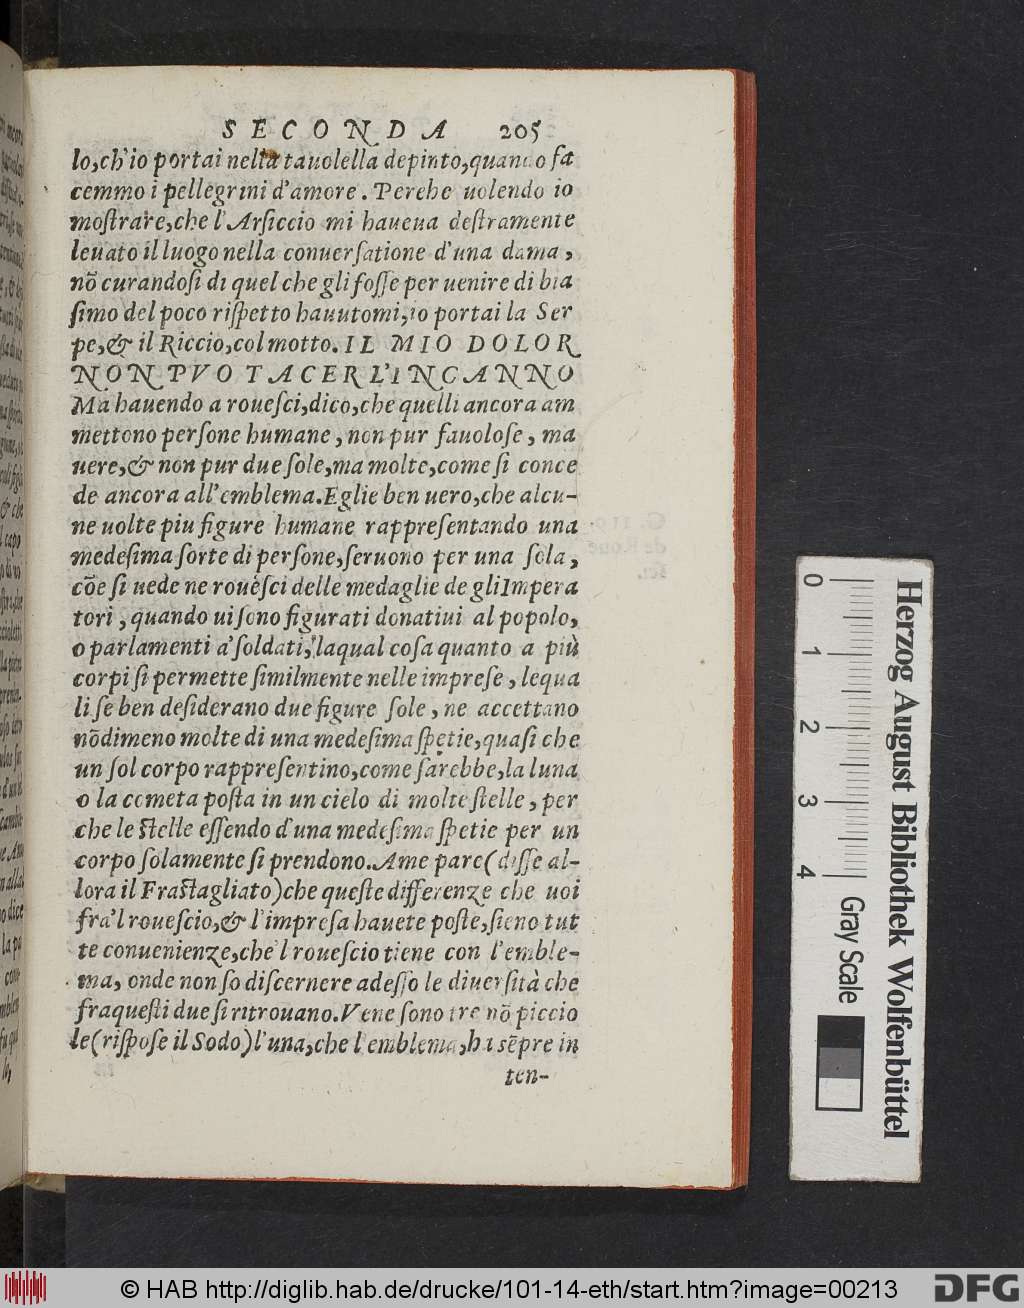 SECONDA 205
lo,ch'io portai nella tauolella depinto,quando fa
cemmo i pellegrini d'amore. Perche uolendo io
moſtrare,che l'Arſiccio mi haueua deſtramente
leuato il luogo nella conuerſatione d'una dama,
nō curandoſi di quel che gli foſſe per uenire di bia
ſimo del poco riſpetto hauutomi,io portai la Ser
pe,& il Riccio,col motto. IL MIO DOLOR
NON PVO TACER L'INGANNO
Ma hauendo a roueſci,dico,che quelli ancora am
mettono perſone humane, non pur fauoloſe, ma
uere,& non pur due ſole,ma molte,come ſi conce
de ancora all'emblema. Eglie ben uero,che alcu-
ne uolte piu figure humane rappreſentando una
medeſima ſorte di perſone,ſeruono per una ſola,
cōe ſi uede ne roueſci delle medaglie de gli Impera
tori, quando ui ſono figurati donatiui al popolo,
o parlamenti a' ſoldati, laqual coſa quanto a più
corpi ſi permette ſimilmente nelle impreſe, lequa
li ſe ben deſiderano due figure ſole, ne accettano
nōdimeno molte di una medeſima ſpetie,quaſi che
un ſol corpo rappreſentino,come ſarebbe,la luna
o la cometa poſta in un cielo di molte ſtelle, per
che le ſtelle eſſendo d'una medeſima ſpetie per un
corpo ſolamente ſi prendono. A me pare (diſſe al-
lora il Fraſtagliato) che queſte differenze che uoi
fra'l roueſcio,& l'impreſa hauete poſte,ſieno tut
te conuenienze,che'l roueſcio tiene con l'emble-
ma, onde non ſo diſcernere adeſſo le diuerſità che
fra queſti due ſi ritrouano. Ve ne ſono tre nō piccio
le (riſpoſe il Sodo) l'una,che l'emblema,ha sēpre in
ten-
Herzog August Bibliothek Wolfenbüttel
0 1 2 3 4 Gray Scale
© HAB http://diglib.hab.de/drucke/101-14-eth/start.htm?image=00213 DFG